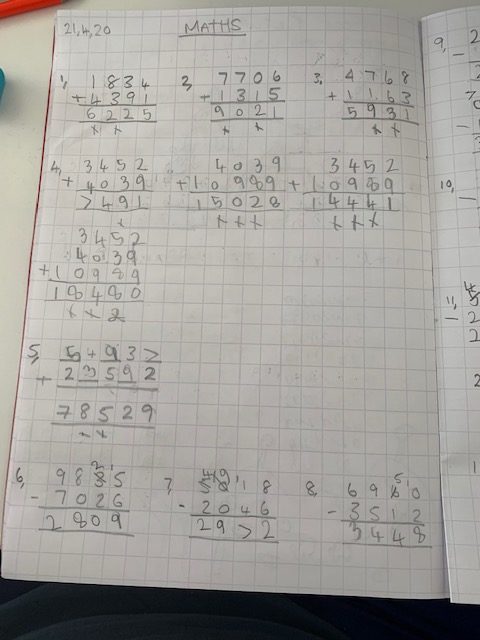 21,4,20
MATHS
1, 1834
+ 4391
6225
2, 7706
+ 1315
9021
3, 4768
+ 1163
5931
4, 3452
+ 4039
7491
4039
+ 10989
15028
3452
+ 10989
14441
3452
4039
+ 10989
18480
2
5, 54937
+ 23592
78529
6, 9835
- 7026
2809
7, 5018
- 2046
2972
8, 6960
- 3512
3448
9,
10,
11,